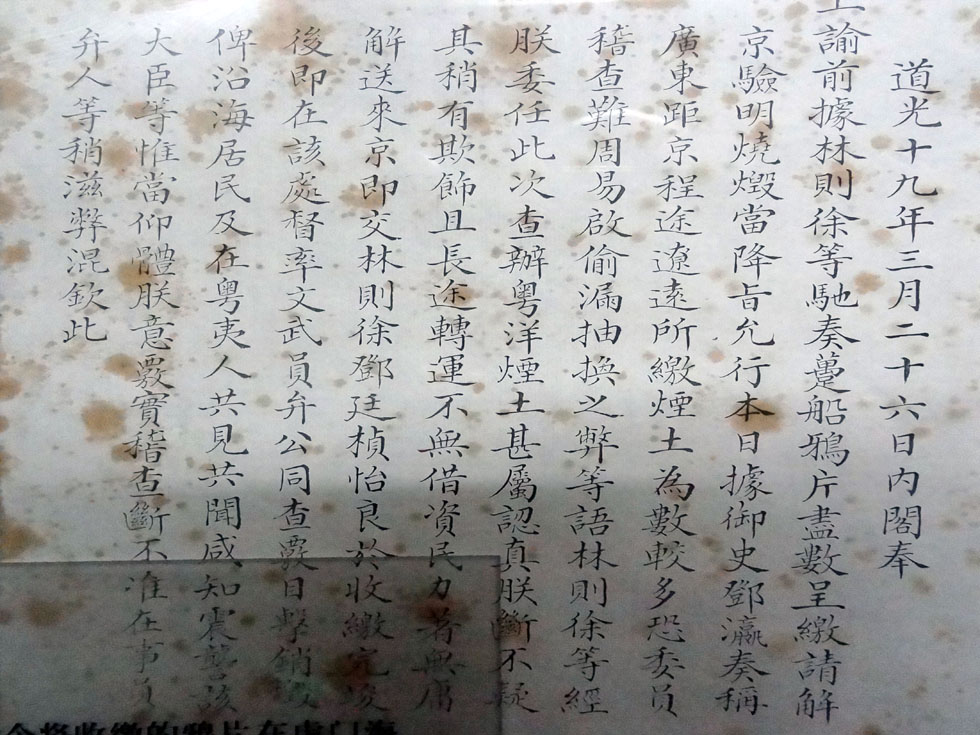 道光十九年三月二十六日內閣奉
上諭前據林則徐等馳奏躉船鴉片盡數呈繳請解
京驗明燒燬當降旨允行本日據御史鄧瀛奏稱
廣東距京程途遼遠所繳煙土為數較多恐委員
稽查難周易啟偷漏抽換之弊等語林則徐等經
朕委任此次查辦粵洋煙土甚屬認真朕斷不疑
其稍有欺飾且長途轉運不無借資民力著無庸
解送來京即交林則徐鄧廷楨怡良於收繳完竣
後即在該處督率文武員弁公同查覈目擊銷燬
俾沿海居民及在粵夷人共見共聞咸知震讋該
大臣等惟當仰體朕意覈實稽查斷不准在事員
弁人等稍滋弊混欽此
令將收繳的鴉片在虎門海